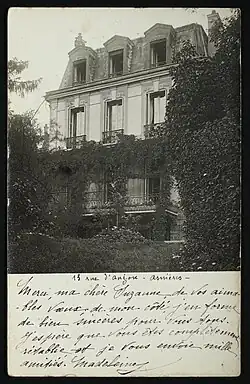 13 rue d'Anjou - Asnières -
Merci, ma chère Suzanne, de vos aima-
bles Vœux. de mon côté j'en forme
de bien sincères pour vous tous.
J'espère que vous êtes complètement
rétablie et je vous envoie mille
amitiés. Madeleine